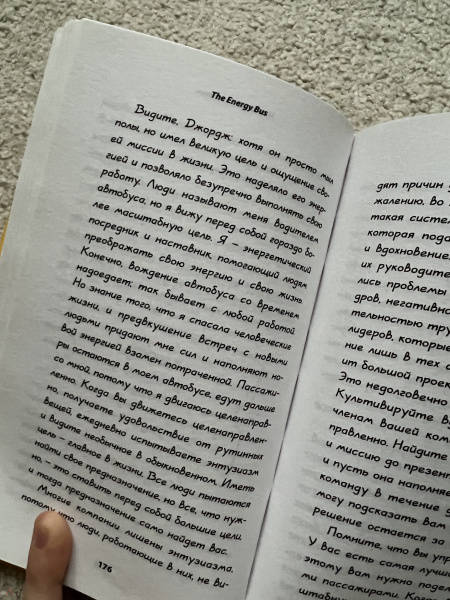 The Energy Bus
Видите, Джордж: хотя он просто мыл
полы, но имел великую цель и ощущение сво-
ей миссии в жизни. Это наделяло его энер-
гией и позволяло безупречно выполнять свою
работу. Люди называют меня водителем
автобуса, но я вижу перед собой гораздо бо-
лее масштабную цель. Я — энергетический
посредник и наставник, помогающий людям
преображать свою энергию и свою жизнь
Конечно, вождение автобуса со временем
надоедает; так бывает с любой работой
Но знание того, что я спасала человеческие
жизни, и предвкушение встреч с новыми
людьми придают мне сил и наполняют но-
вой энергией взамен потраченной. Пассажи-
ры остаются в моем автобусе, едут дальше
со мной, потому что я двигаюсь целенаправ-
ленно. Когда вы движетесь целенаправлен-
но, получаете удовольствие от рутинных
вещей, ежедневно испытываете энтузиазм
и видите необычное в обыкновенном. Иметь
цель — главное в жизни. Все люди пытаются
найти свое предназначение, но все, что нуж-
но, — это ставить перед собой большие цели,
и тогда предназначение само найдет вас.
Многие компании лишены энтузиазма,
потому что люди, работающие в них, не ви-
176
дят причин
жалению, во
такая систем
которая пода
и вдохновением
их руководите
лись проблемы
дров, негативно
тельностью тру
лидеров, которые
ние лишь в тех с
ит большой проек
Это недолговечно
Культивируйте в
членам вашей ком
правленно. Найдите
и миссию до презен
и пусть она наполняе
команду в течение
могу подсказать вам
решение остается за
Помните, что вы упр
У вас есть самая лучш
этому вам нужно подел
ми пассажирами. Когда
штабны